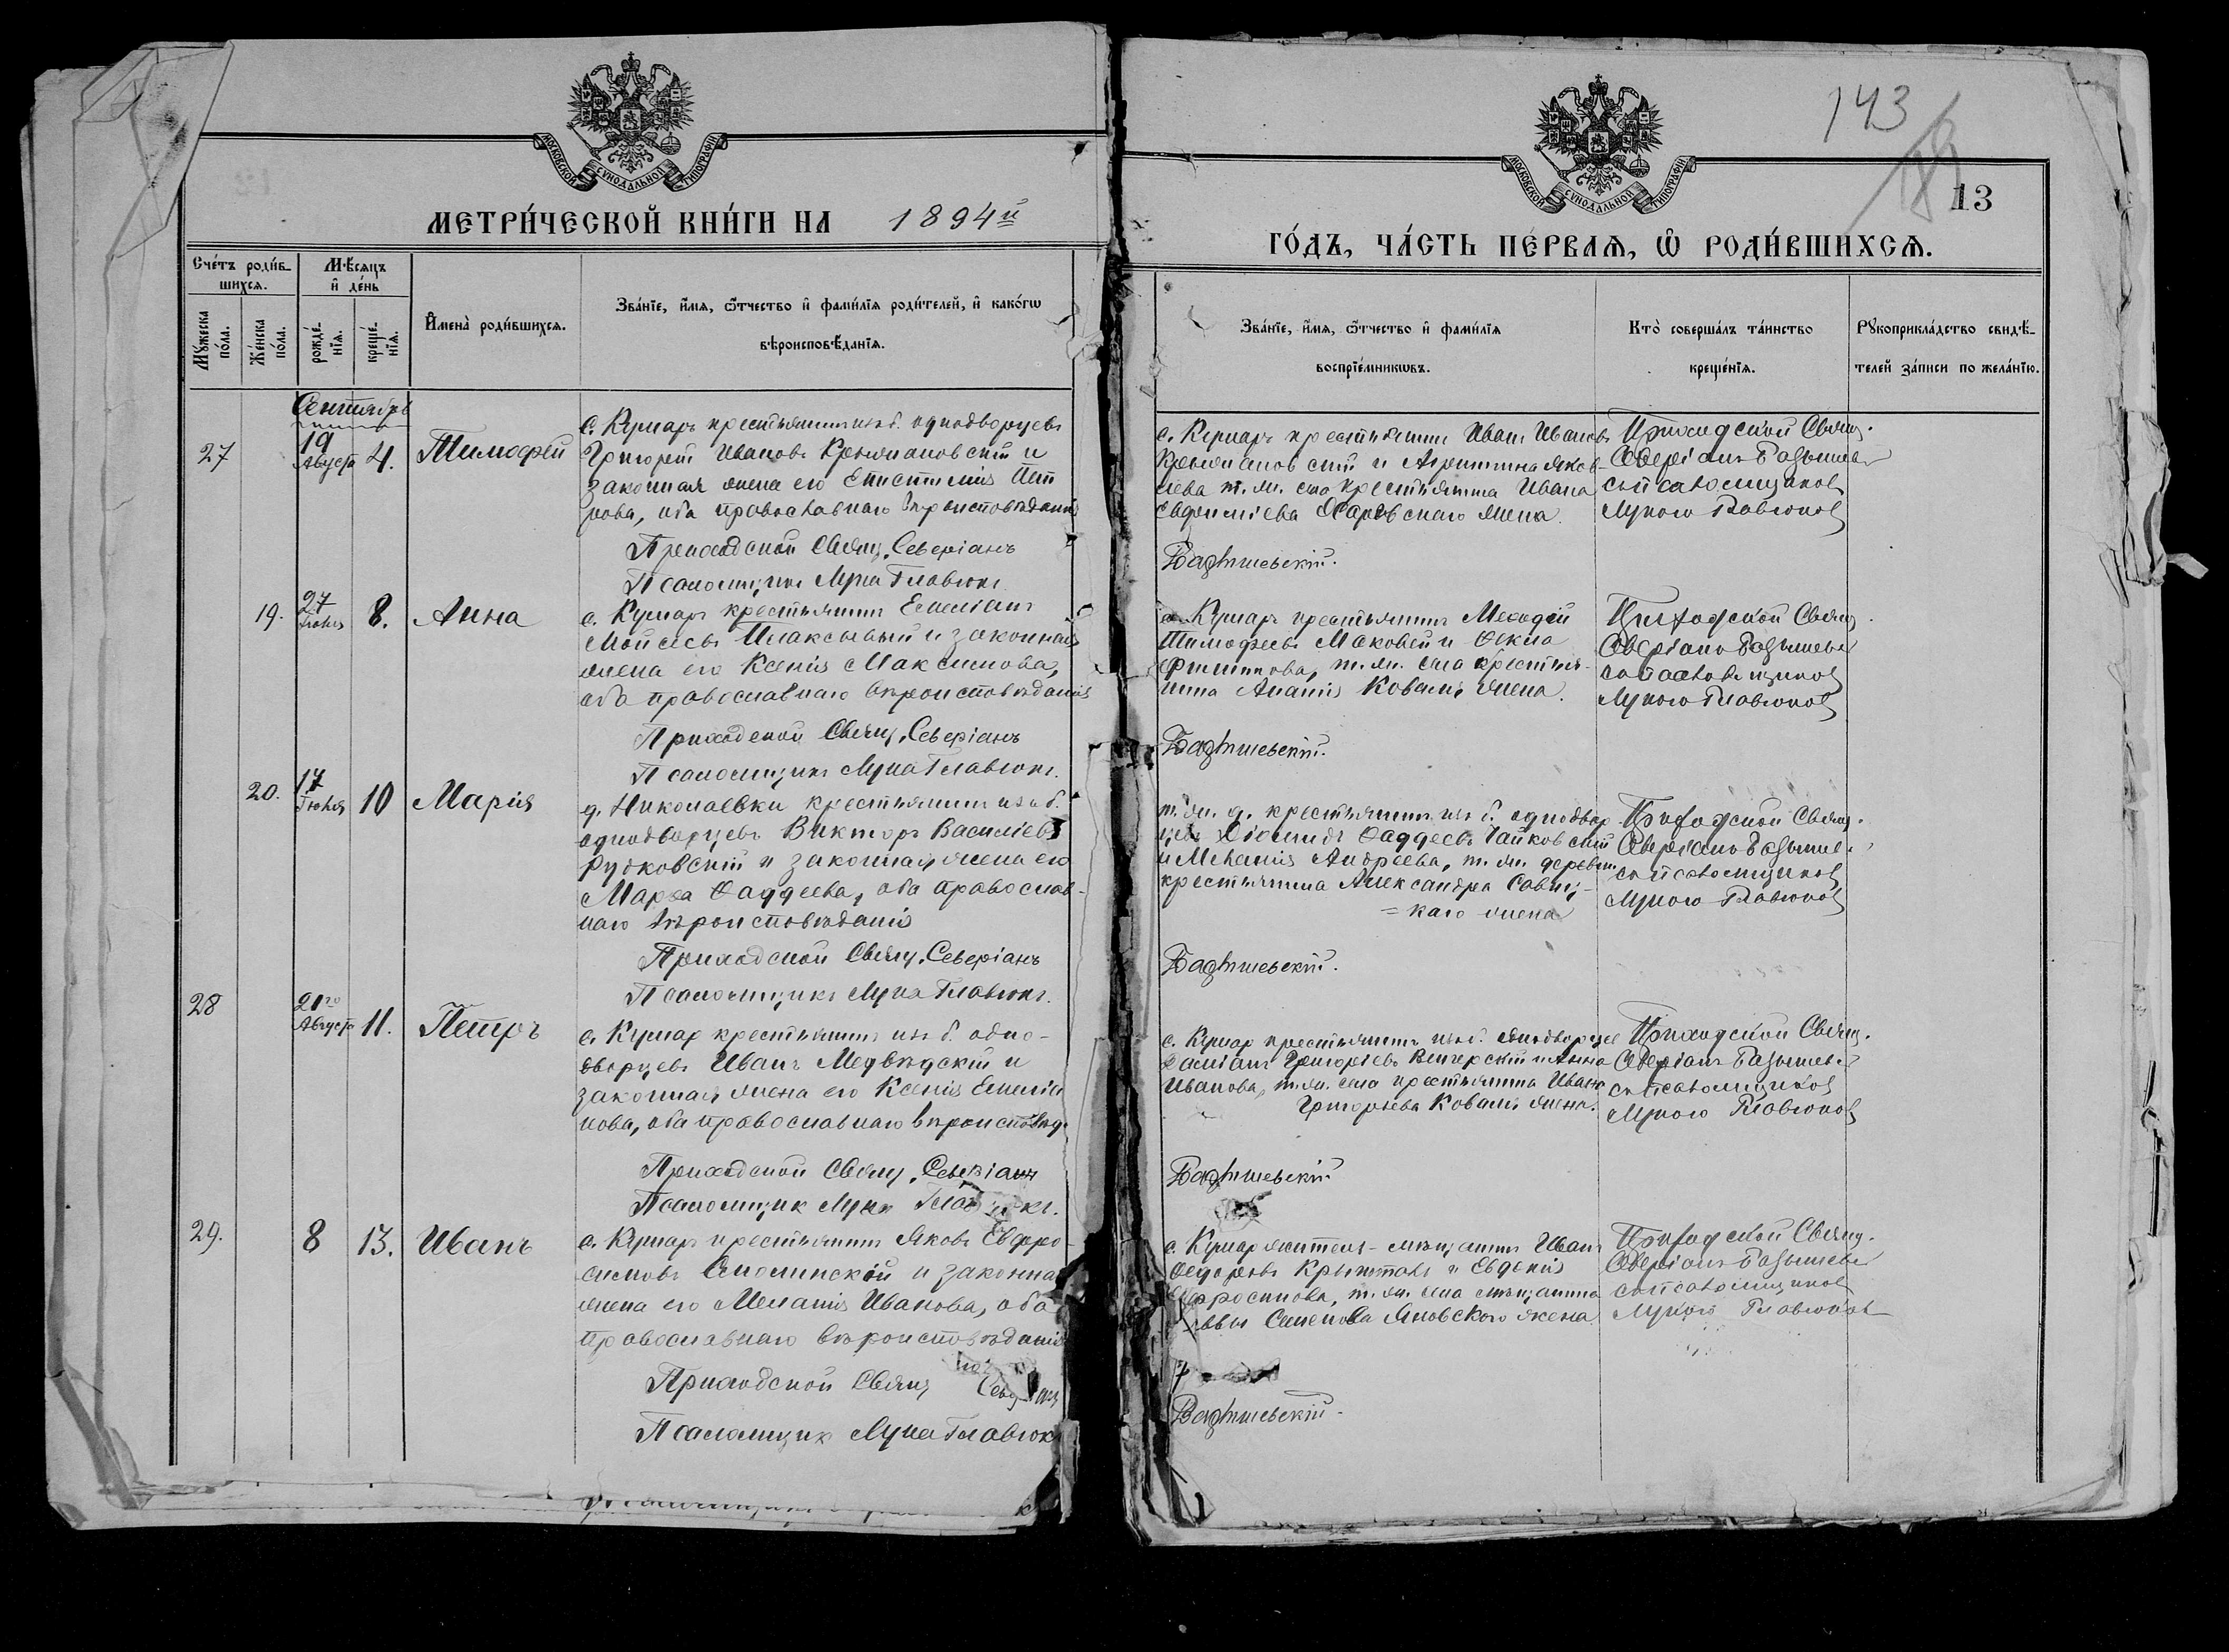 МОСКОВСКОЙ СѴНОДАЛЬНОЙ ТИПОГРАФІИ
МЕТРИ́ЧЕСКОЙ КНИ́ГИ НА 1894й
Сче́тъ роди́в-
шихсѧ.
Мѣ́сѧцъ
и҆ де́нь
Мꙋ́жеска
по́ла.
Же́нска
по́ла.
рожде́-
нїѧ.
креще́-
нїѧ.
И҆мена̀ роди́вшихсѧ.
Зва́нїе, и҆́мѧ, ѻ҆́тчество и҆ фами́лїѧ роди́телей, и҆ како́гѡ
вѣроисповѣ́данїѧ.
Сентябрь
27
19
Августа
4.
Тимофей
с. Кушаръ крестьянинъ изъ б. однодворцевъ
Григорій Ивановъ Крыжановскій и
законная жена его Епистимія Пет
рова, оба православнаго вѣроисповѣданія
Приходской Свящ. Северіанъ
Псаломщикъ Лука Главюкъ
19.
27
Іюня
8.
Анна
с. Кушаръ крестьянинъ Емеліанъ
Мойсеевъ Плаксывый и законная
жена его Ксенія Максимова,
оба православнаго вѣроисповѣданія
Приходской Свящ. Северіанъ
Псаломщикъ Лука Главюкъ.
20.
17
Іюня
10
Марія
д. Николаевки крестьянинъ изъ б.
однодворцевъ Викторъ Василіевъ
Рудковскій и законная жена его
Марѳа Ѳаддеева, оба православ-
наго вѣроисповѣданія
Приходской Свящ. Северіанъ
Псаломщикъ Лука Главюкъ.
28
21го
Августа
11.
Петръ
с. Кушар крестьянинъ изъ б. одно-
дворцевъ Иванъ Медвѣдскій и
законная жена его Ксенія Емеліа
нова, оба православнаго вѣроисповѣд.
Приходской Свящ. Северіанъ
Псаломщик Лука
29.
8
13.
Иванъ
с. Кушаръ крестьянинъ Яковъ Евфро-
симовъ Смолинскій и законная
жена его Меланія Иванова, оба
православнаго вѣроисповѣданія
Приходской Свящ
Псаломщик Лука Главюкъ
143
13
МОСКОВСКОЙ СѴНОДАЛЬНОЙ ТИПОГРАФІИ
ГО́ДЪ, ЧА́СТЬ ПЕ́РВАѦ, Ѽ РОДИ́ВШИХСѦ.
Зва́нїе, и҆́мѧ, ѻ҆́тчество и҆ фами́лїѧ
воспрїе́мникѡвъ.
Кто̀ соверша́лъ та́инство
креще́нїѧ.
Рꙋкоприкла́дство свидѣ́-
телей за́писи по жела́нїю.
с. Кушаръ крестьянинъ Иванъ Ивановъ
Крыжановскій и Агрипина Яков-
лева т. ж. села крестьянина Ивана
Евфиміева жена.
Приходской Свящ.
Северіанъ
съ псаломщикомъ
Лукою Главюкомъ
с. Кушаръ крестьянинъ Меѳодій
Тимофеевъ Маковей и Ѳекла
Филиппова, т. ж. села крестья-
нина Ананія Коваля жена.
Приходской Свящ.
Северіанъ
съ псаломщикомъ
Лукою Главюкомъ
т. ж. д. крестьянинъ изъ б. однодвор
цевъ Діомидъ Ѳаддеевъ Чайковскій
и Меланія Андреева, т. ж. деревни
крестьянина Александра Савиц-
=каго жена
Приходской Свящ.
Северіанъ
съ псаломщикомъ
Лукою Главюкомъ
с. Кушар крестьянинъ изъ б. однодворцев
Даміанъ Григоріевъ Венгерскій и Анна
Иванова, т. ж. села крестьянина Ивана
Григорьева Коваля жена.
Приходской Свящ.
Северіанъ
съ псаломщикомъ
Лукою Главюкомъ
с. Кушар житель-мѣщанинъ Иванъ
Ѳедоровъ и Евдокія
Евфросимова, т. ж. села мѣщанина
Саввы Семенова Яновского жена
Приходской Свящ.
Северіанъ
съ псаломщикомъ
Лукою Главюкомъ